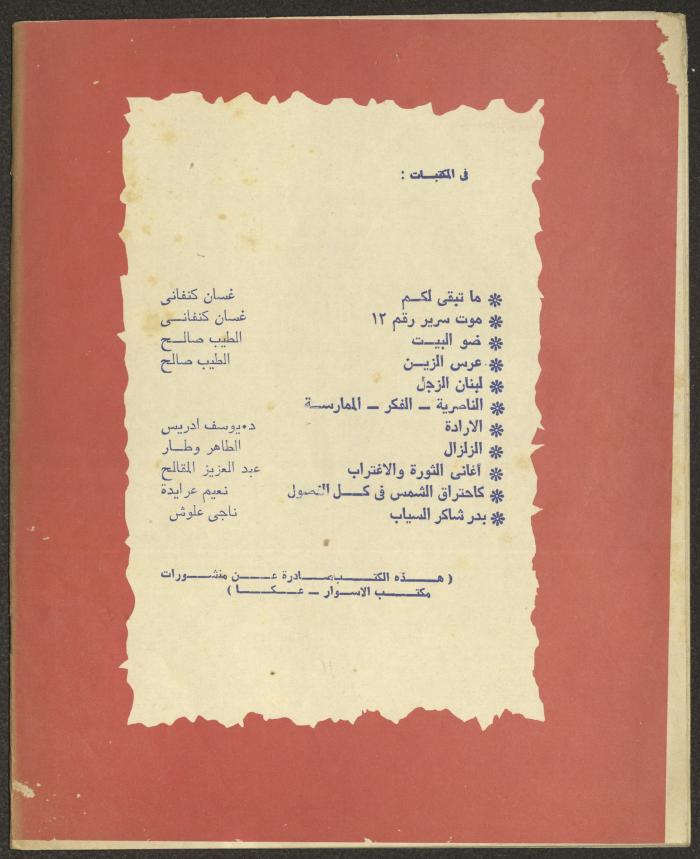 فى المكتبات :
❋ ما تبقى لكم غسان كنفانى
❋ موت سرير رقم ١٢ غسان كنفانى
❋ ضو البيت الطيب صالح
❋ عرس الزين الطيب صالح
❋ لبنان الزجل
❋ الناصرية ــ الفكر ــ الممارسة
❋ الارادة د٠يوسف ادريس
❋ الزلزال الطاهر وطار
❋ أغانى الثورة والاغتراب عبد العزيز المقالح
❋ كاحتراق الشمس فى كل الفصول نعيم عرايدة
❋ بدر شاكر السياب ناجى علوش
( هذه الكتب صادرة عن منشورات
مكتب الاسوار ــ عكا )